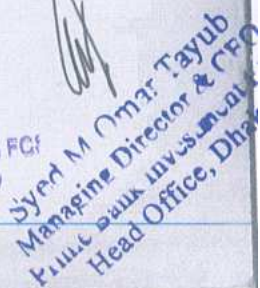 FCS
Syed M Omar Tayub
Managing Director & CEO
Prime Bank Investment
Head Office, Dhak